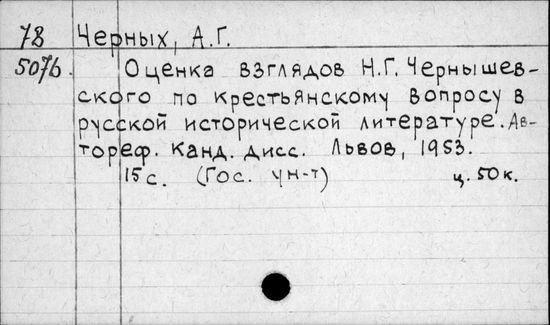 78 Черных, А.Г.
5076. Оценка взглядов Н.Г. Чернышев-
ского по крестьянскому вопросу в
русской исторической литературе. Ав-
тореф. канд. дисс. Львов, 1953.
15 с. (Гос. ун-т) ц. 50 к.